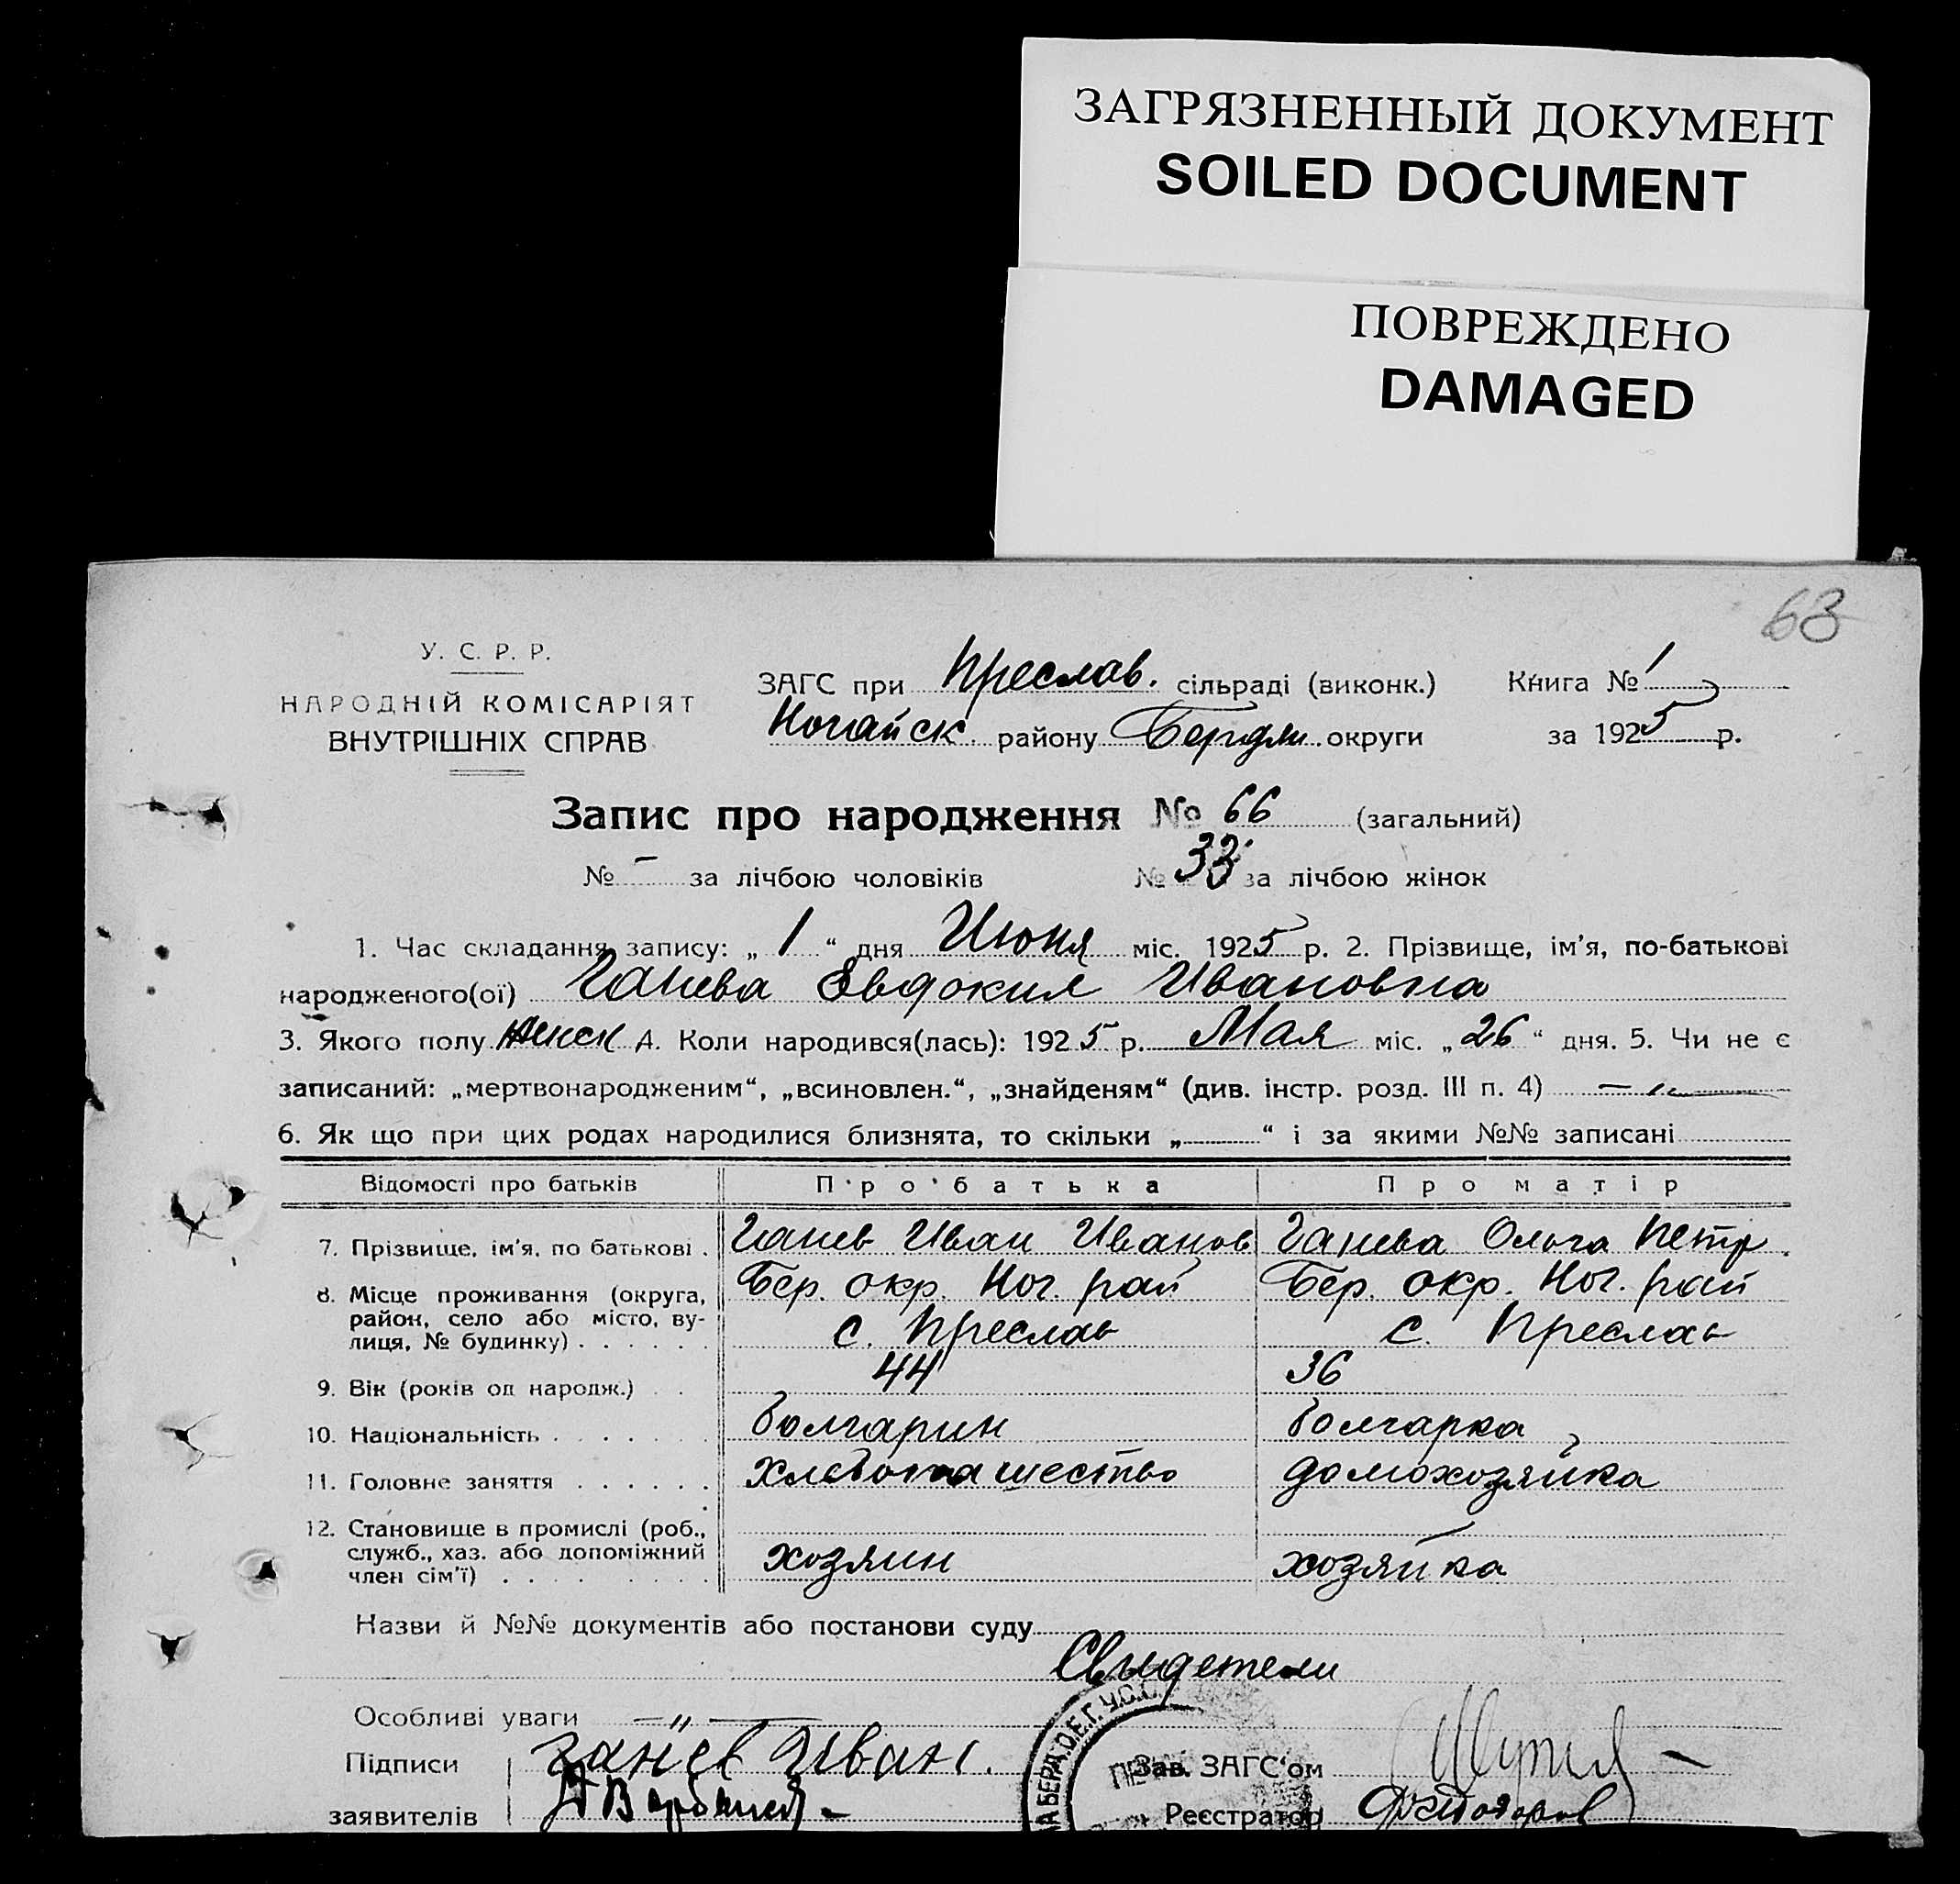 ЗАГРЯЗНЕННЫЙ ДОКУМЕНТ
SOILED DOCUMENT
ПОВРЕЖДЕНО
DAMAGED
63
У. С. Р. Р.
НАРОДНІЙ КОМІСАРІЯТ
ВНУТРІШНІХ СПРАВ
ЗАГС при Преслав. сільраді (виконк.) Книга № 1
Ногайск району Бердян. округи за 1925 р.
Запис про народження № 66 (загальний)
№ – за лічбою чоловіків № 33 за лічбою жінок
1. Час складання запису: „ 1 “ дня Июня міс. 1925 р. 2. Прізвище, ім’я, по-батькові
народженого(ої) Ганева Евдокия Ивановна
3. Якого полу женск 4. Коли народився(лась): 1925 р. Мая міс. „ 26 “ дня. 5. Чи не є
записаний: „мертвонародженим“, „всиновлен.“, „знайденям“ (див. інстр. розд. III п. 4) –„–
6. Як що при цих родах народилися близнята, то скільки „ “ і за якими №№ записані
Відомості про батьків Про батька Про матір
7. Прізвище, ім’я, по батькові . Ганев Иван Иванов Ганева Ольга Петр.
8. Місце проживання (округа, район, село або місто, вулиця, № будинку) . . . . . . Бер. окр. Ног. рай с. Преслав Бер. окр. Ног. рай с. Преслав
9. Вік (років од народж.) . . 44 36
10. Національність . . . . . . . болгарин болгарка
11. Головне заняття . . . . . . хлебопашество домохозяйка
12. Становище в промислі (роб., служб., хаз. або допоміжний член сім’ї) . . . . . . . . хозяин хозяйка
Назви й №№ документів або постанови суду
Свидетели
Особливі уваги –„–
Підписи Ганев Иван. Зав. ЗАГС‘ом
заявителів Реєстратор